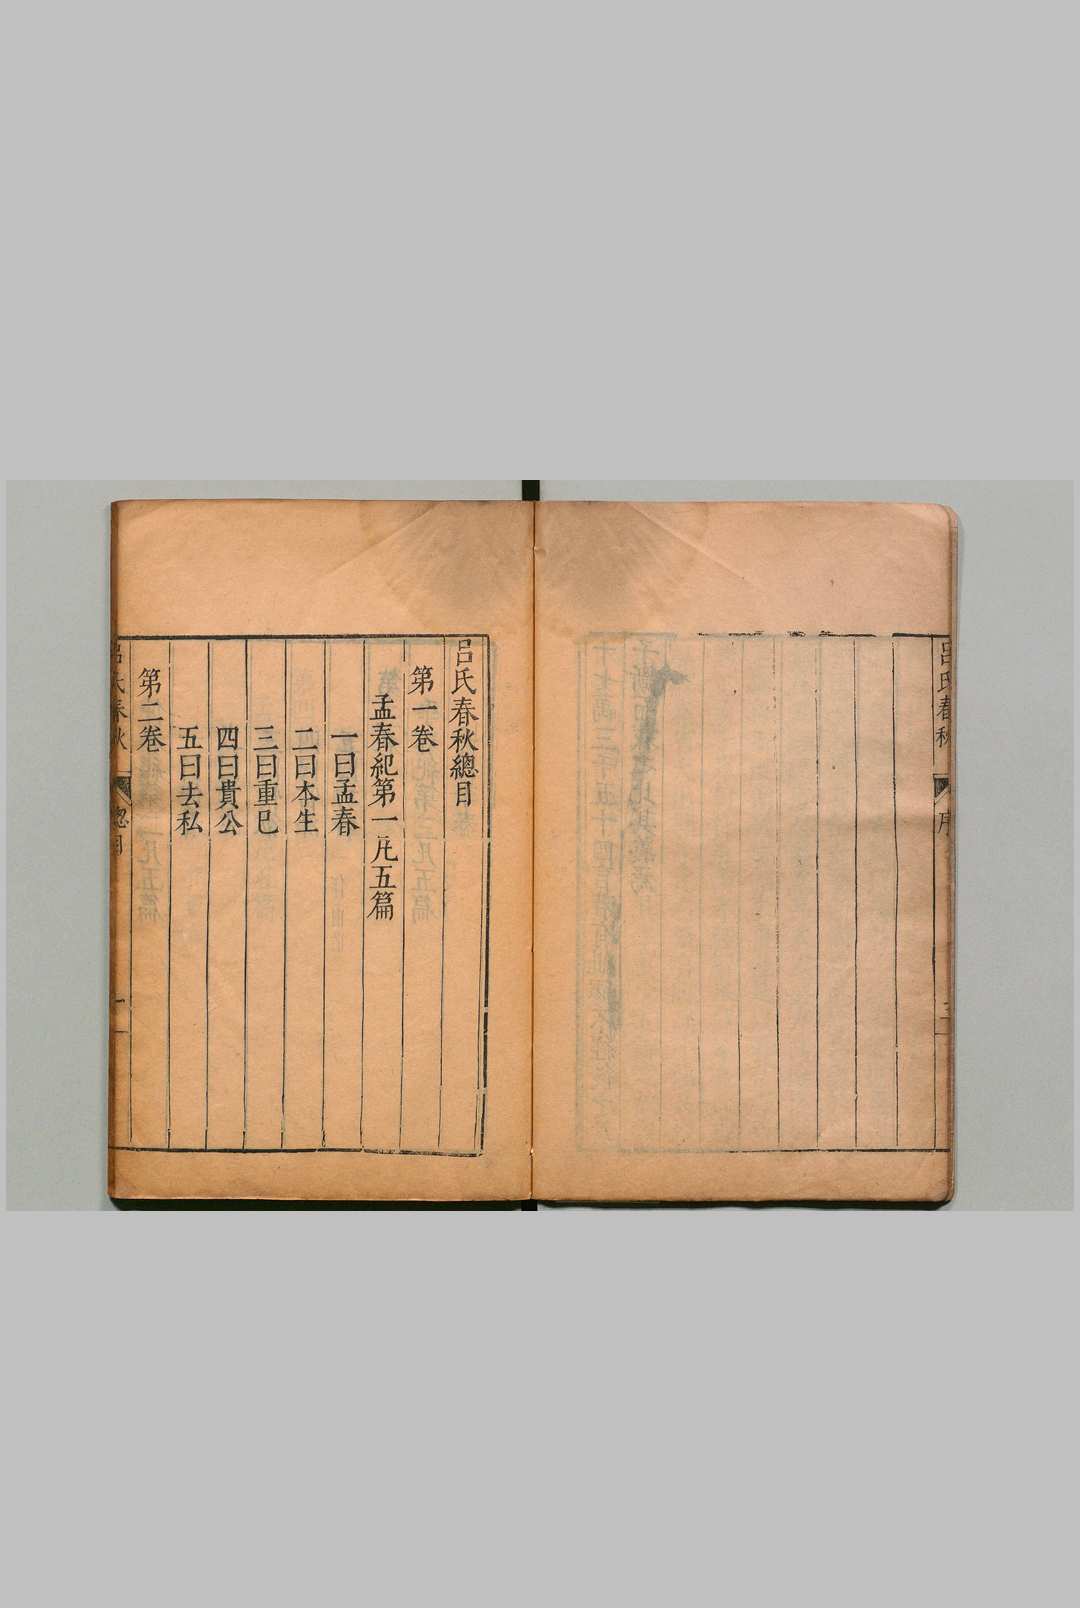 呂氏春秋
序
呂氏春秋總目
第一卷
孟春紀第一凡五篇
一曰孟春
二曰本生
三曰重巳
四曰貴公
五曰去私
第二卷
呂氏春秋
總目
一